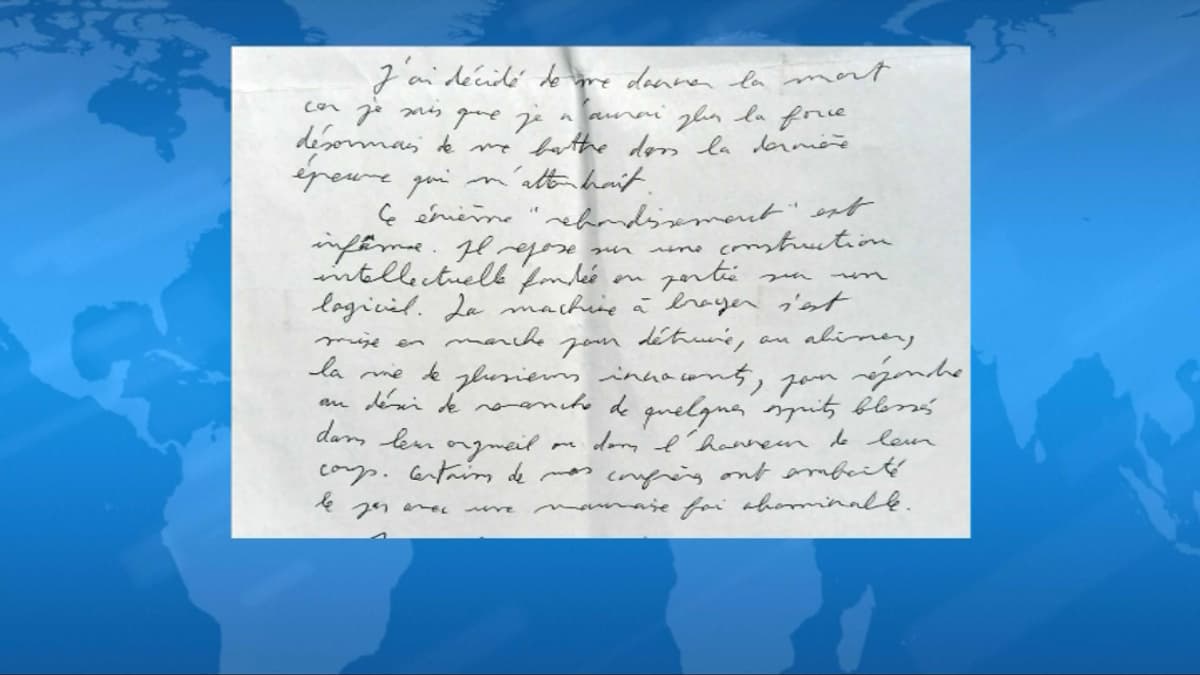 J'ai décidé de me donner la mort
car je sais que je n'aurai plus la force
désormais de me battre dans la dernière
épreuve qui m'attendrait.
Ce énième "rebondissement" est
infâme. Il repose sur une construction
intellectuelle fondée en partie sur un
logiciel. La machine à broyer s'est
mise en marche pour détruire, ou abimer,
la vie de plusieurs innocents, pour répondre
au désir de revanche de quelques esprits blessés
dans leur orgueil ou dans l'honneur de leur
corps. Certains de mes confrères ont emboité
le pas avec une mauvaise foi abominable.